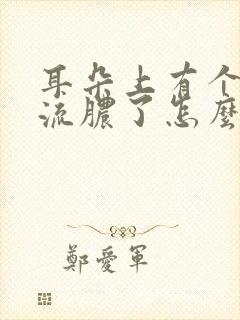 耳朵上有个
流膿了怎麼
鄭愛軍